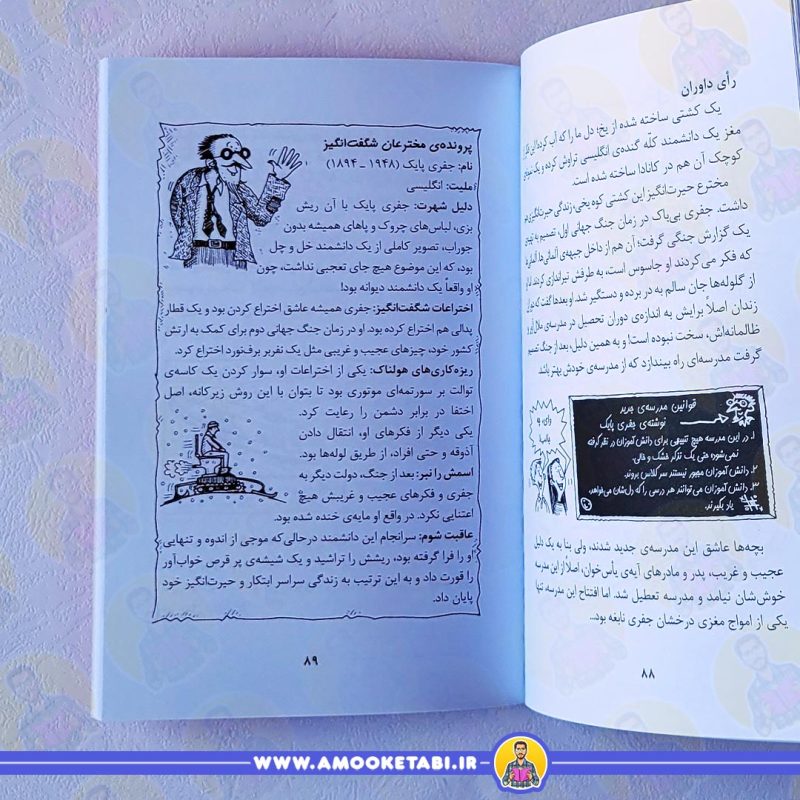 رأی داوران
یک کشتی ساخته شده از یخ؛ دل ما را که آب کرد!
مغز یک دانشمند کلّه گنده‌ی انگلیسی تراوش کرده و یک
کوچک آن هم در کانادا ساخته شده است.
مخترع حیرت‌انگیز این کشتی کوه یخی، زندگی حیرت‌انگیزی هم
داشت. جفری بی‌باک در زمان جنگ جهانی اول، تصمیم به
یک گزارش جنگی گرفت؛ آن هم از داخل جبهه‌ی آلمان!
که فکر می‌کردند او جاسوس است، به طرفش تیراندازی کردند
از گلوله‌ها جان سالم به در برده و دستگیر شد. او بعدها گفت که
زندان اصلاً برایش به اندازه‌ی دوران تحصیل در مدرسه‌ی
ظالمانه‌اش، سخت نبوده است! و به همین دلیل، بعد از جنگ تصمیم
گرفت مدرسه‌ای راه بیندازد که از مدرسه‌ی خودش بهتر باشد.
وای، چه
قوانین مدرسه‌ی جدید
نوشته‌ی جفری پایک
۱. در این مدرسه هیچ تنبیهی برای دانش‌آموزان در نظر گرفته
نمی‌شود؛ حتی یک تذکر خشک و خالی.
۲. دانش‌آموزان مجبور نیستند سر کلاس بروند.
۳. دانش‌آموزان می‌توانند هر درسی را که دلشان می‌خواهد،
یاد بگیرند.
بچه‌ها عاشق این مدرسه‌ی جدید شدند، ولی بنا به یک دلیل
عجیب و غریب، پدر و مادرهای آیه‌ی یأس‌خوان، اصلاً از این مدرسه
خوش‌شان نیامد و مدرسه تعطیل شد. اما افتتاح این مدرسه، تنها
یکی از امواج مغزی درخشان جفری نابغه بود...
۸۸
پرونده‌ی مخترعان شگفت‌انگیز
نام: جفری پایک (۱۹۴۸ ـ ۱۸۹۴)
ملیت: انگلیسی
دلیل شهرت: جفری پایک با آن ریش
بزی، لباس‌های چروک و پاهای همیشه بدون
جوراب، تصویر کاملی از یک دانشمند خل و چل
بود، که این موضوع هیچ جای تعجبی نداشت، چون
او واقعاً یک دانشمند دیوانه بود!
اختراعات شگفت‌انگیز: جفری همیشه عاشق اختراع کردن بود و یک قطار
پدالی هم اختراع کرده بود. او در زمان جنگ جهانی دوم برای کمک به ارتش
کشور خود، چیزهای عجیب و غریبی مثل یک نفربر برف‌نورد اختراع کرد.
ریزه‌کاری‌های هولناک: یکی از اختراعات او، سوار کردن یک کاسه‌ی
توالت بر سورتمه‌ای موتوری بود تا بتوان با این روش زیرکانه، اصل
اختفا در برابر دشمن را رعایت کرد.
یکی دیگر از فکرهای او، انتقال دادن
آذوقه و حتی افراد، از طریق لوله‌ها بود.
اسمش را نبر: بعد از جنگ، دولت دیگر به
جفری و فکرهای عجیب و غریبش هیچ
اعتنایی نکرد. در واقع او مایه‌ی خنده شده بود.
عاقبت شوم: سرانجام این دانشمند درحالی‌که موجی از اندوه و تنهایی
او را فرا گرفته بود، ریشش را تراشید و یک شیشه‌ی پر قرص خواب‌آور
را قورت داد و به این ترتیب به زندگی سراسر ابتکار و حیرت‌انگیز خود
پایان داد.
۸۹
WWW.AMOOKETABI.IR